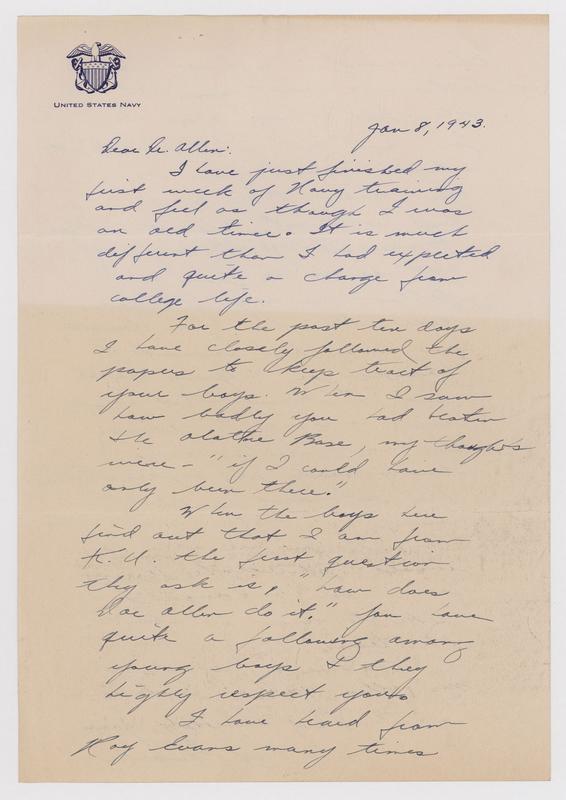 UNITED STATES NAVY
Jan 8, 1943.
Dear Dr. Allen:
I have just finished my
first week of Navy training
and feel as though I was
an old timer. It is much
different than I had expected
and quite a change from
college life.
For the past ten days
I have closely followed the
papers to keep tract of
your boys. When I saw
how badly you had beaten
the Olathe Base, my thoughts
were - "if I could have
only been there."
When the boys here
find out that I am from
K.U. the first question
they ask is, "how does
Doc Allen do it." You have
quite a following among
young boys & they
highly respect you.
I have heard from
Roy Evans many times